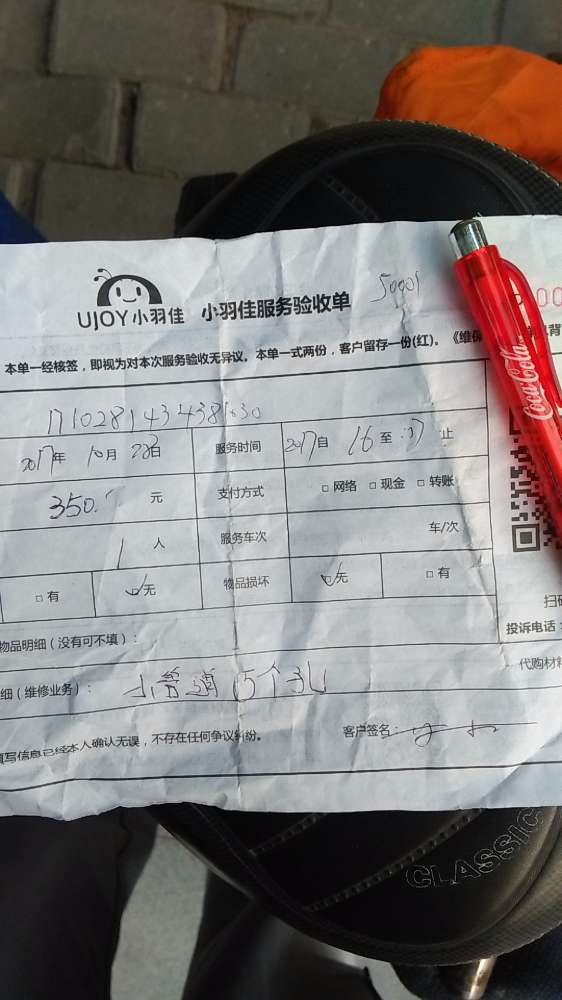 UJOY小羽佳 小羽佳服务验收单 50001
本单一经核签，即视为对本次服务验收无异议。本单一式两份，客户留存一份(红)。《维保
背
Coca-Cola
2017年 10月 28日 服务时间 2017自 16至 17止
350. 元 支付方式 □ 网络 □ 现金 □ 转账
1 人 服务车次 车/次
□ 有 □ 无 物品损坏 □ 无 □ 有
扫码
物品明细（没有可不填）： 投诉电话：
细（维修业务）： 15个孔 代购材料
填写信息已经本人确认无误，不存在任何争议纠纷。 客户签名：
CLASSIC